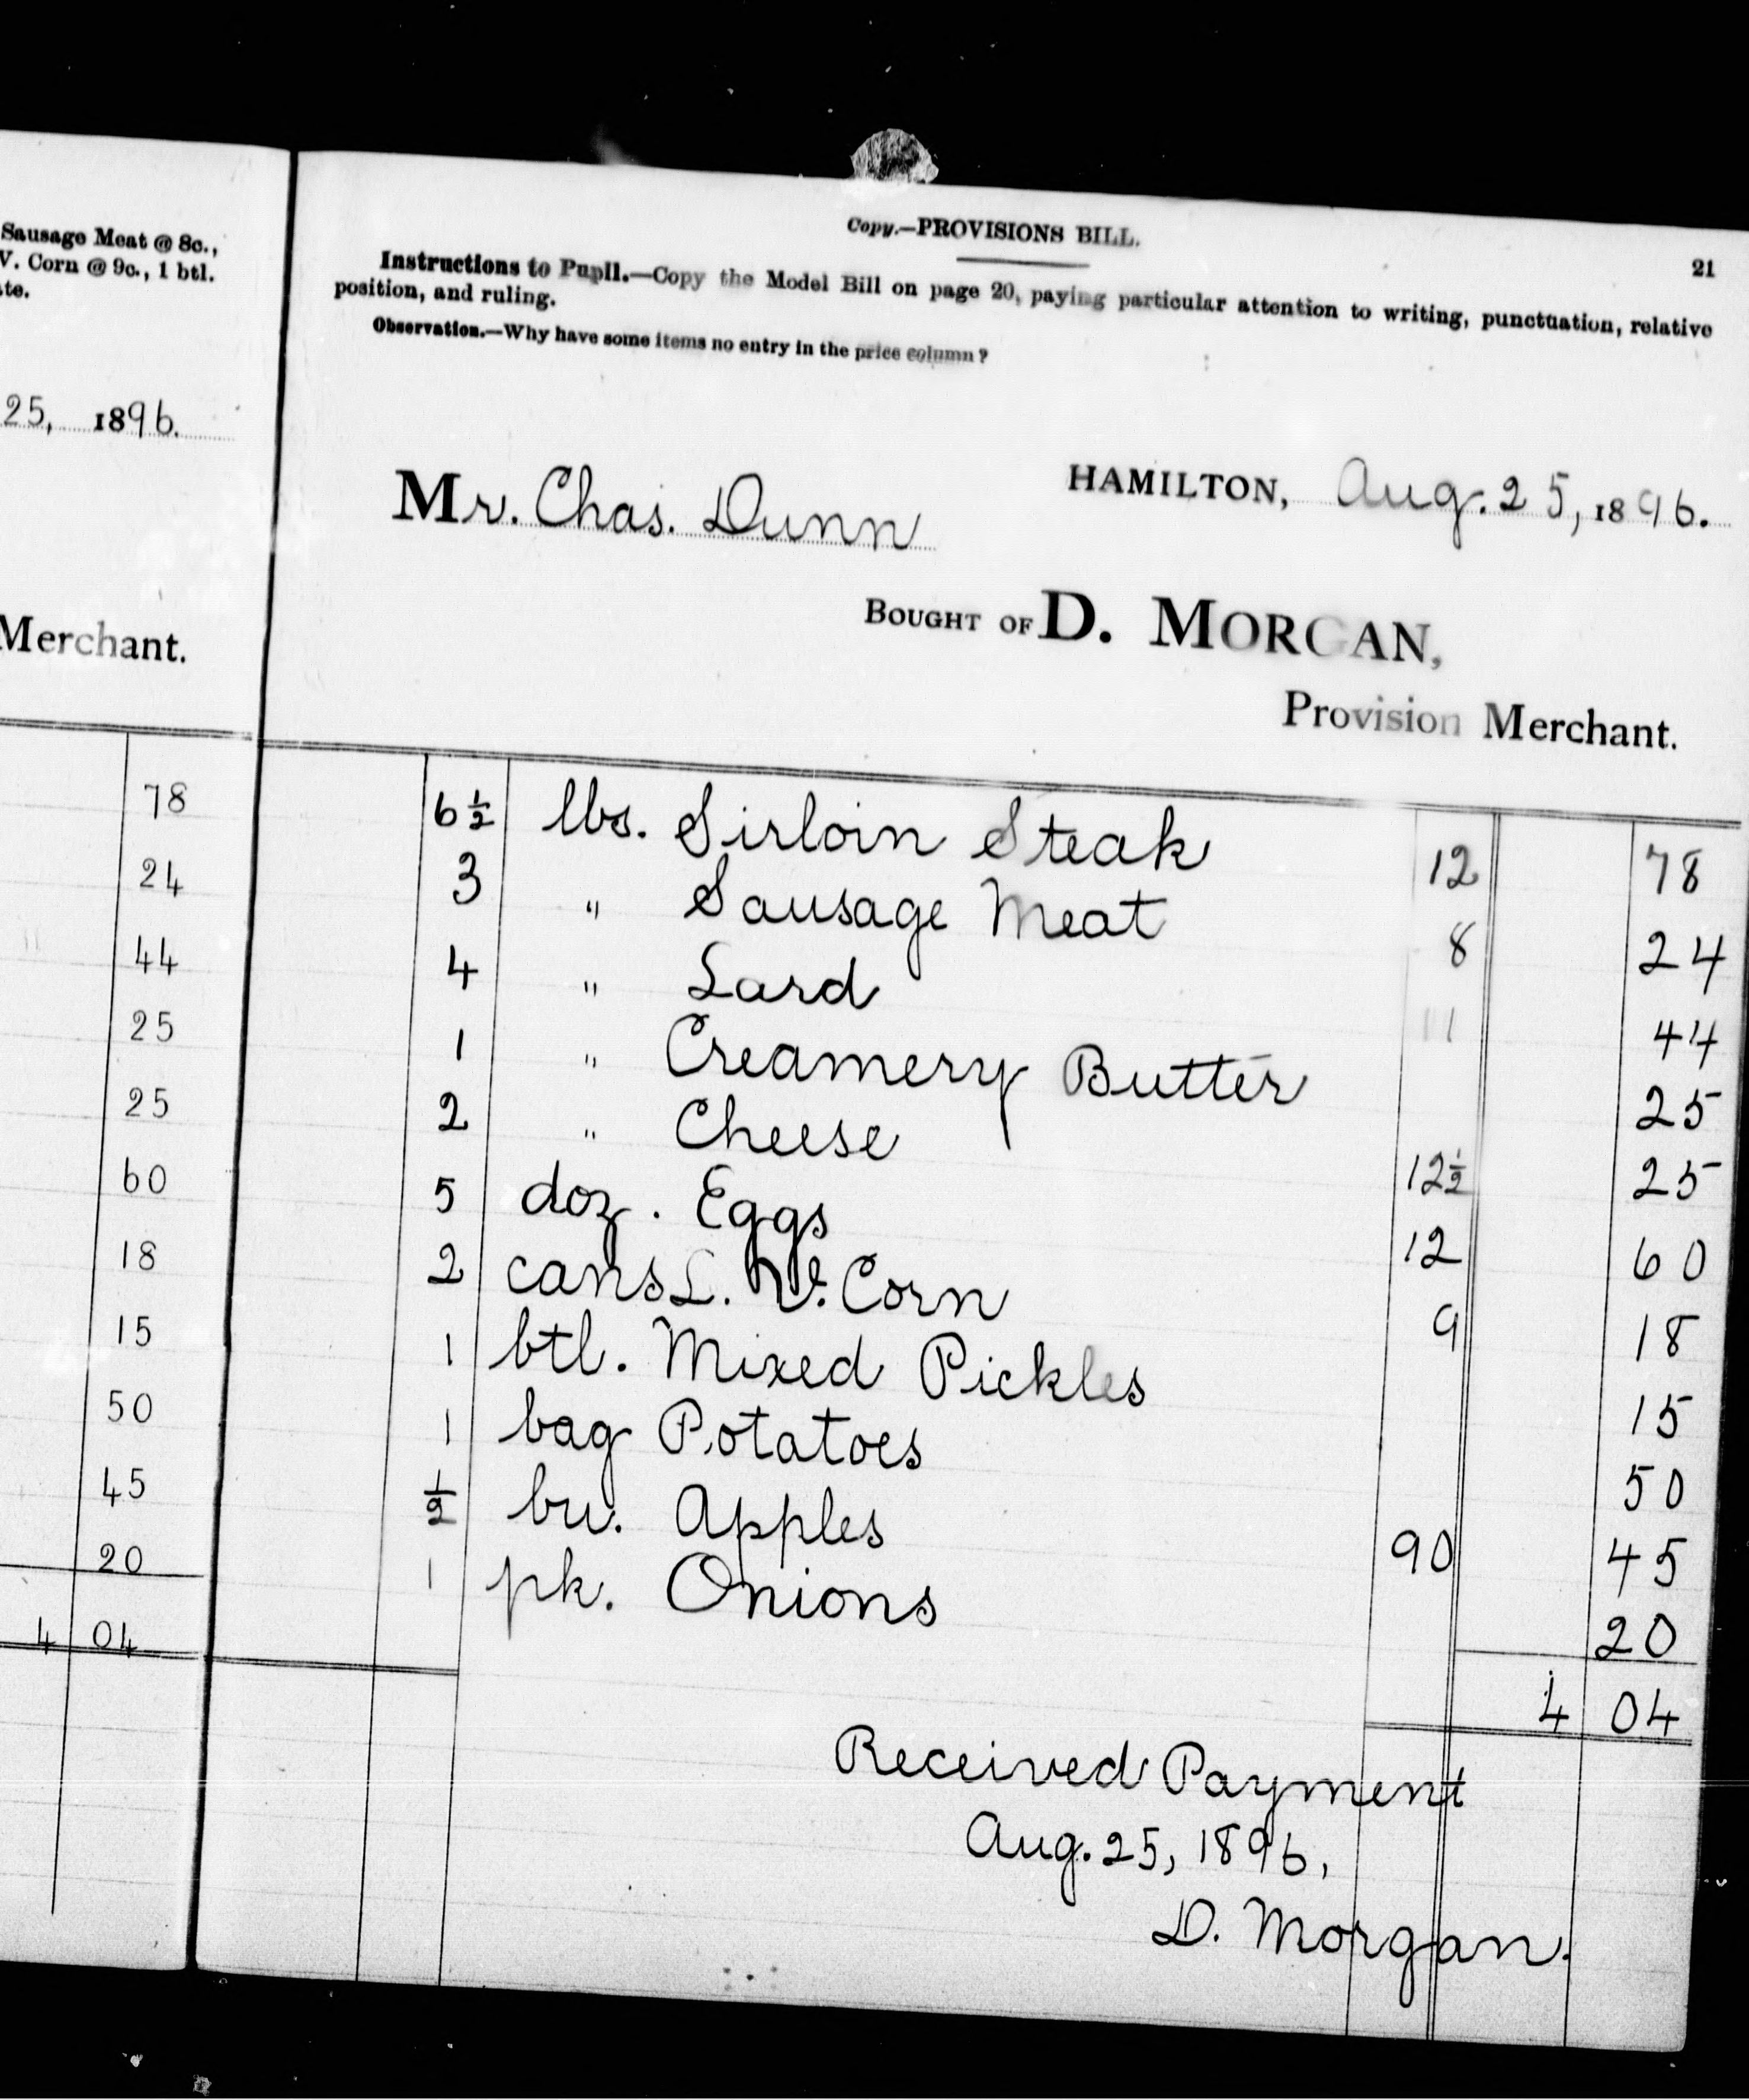 Sausage Meat @ 8c.,
V. Corn @ 9c., 1 btl.
25, 1896.
Merchant.
78
24
44
25
25
60
18
15
50
45
20
4 04
Copy.—PROVISIONS BILL.
21
Instructions to Pupil.—Copy the Model Bill on page 20, paying particular attention to writing, punctuation, relative
position, and ruling.
Observation.—Why have some items no entry in the price column?
HAMILTON, Aug. 25, 1896.
Mr. Chas. Dunn
BOUGHT OF D. MORGAN,
Provision Merchant.
6½ lbs. Sirloin Steak 12 78
3 " Sausage Meat 8 24
4 " Lard 11 44
1 " Creamery Butter 25
2 " Cheese 12½ 25
5 doz. Eggs 12 60
2 cans L. V. Corn 9 18
1 btl. Mixed Pickles 15
1 bag Potatoes 50
½ bu. Apples 90 45
1 pk. Onions 20
4 04
Received Payment
Aug. 25, 1896,
D. Morgan.